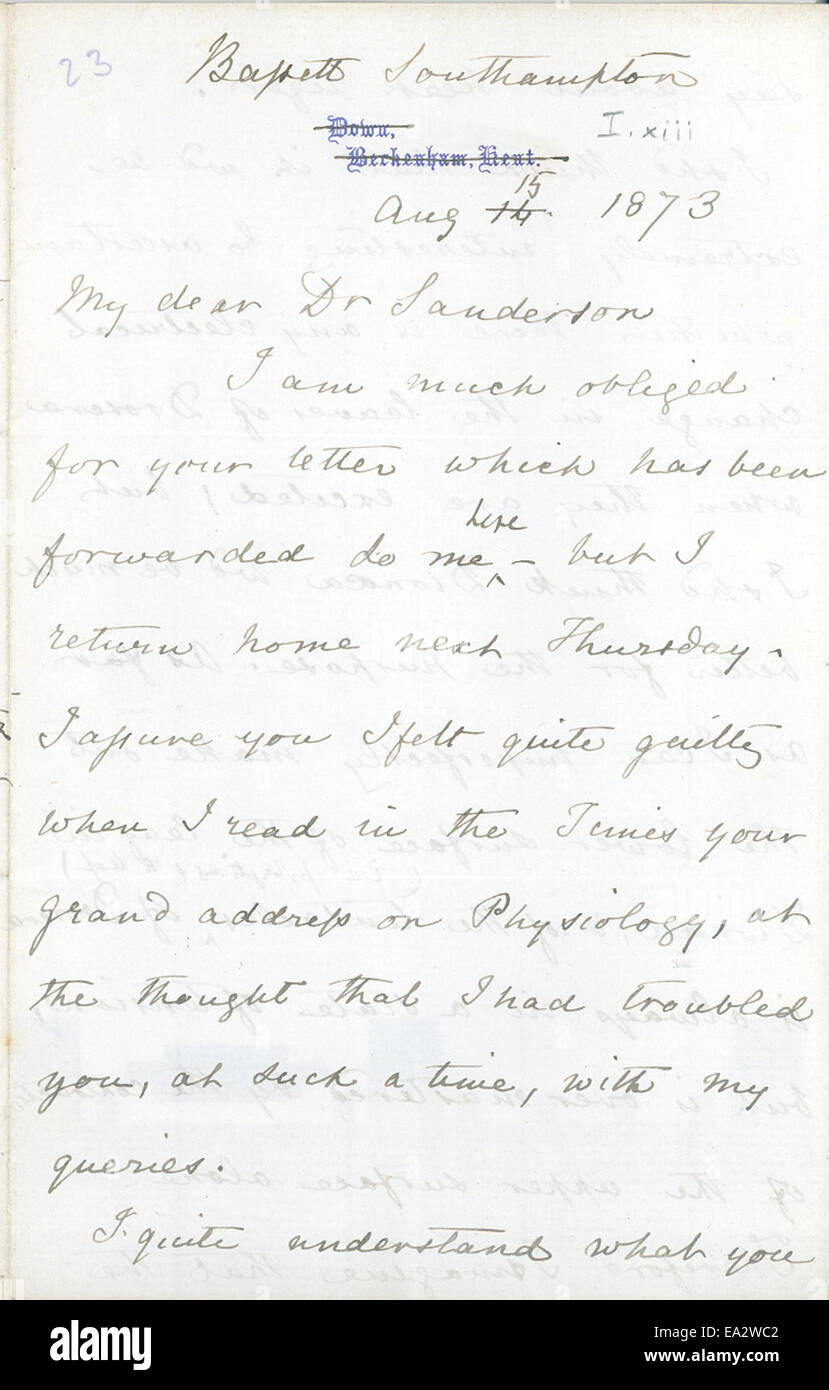 23
Bassett Southampton
Down,
Beckenham, Kent.
I. xiii
Aug 14. 15 1873
My dear Dr Sanderson
I am much obliged
for your letter which has been
forwarded to me here – but I
return home next Thursday –
I assure you I felt quite guilty
when I read in the Times your
grand address on Physiology, at
the thought that I had troubled
you, at such a time, with my
queries.
I quite understand what you
alamy
Image ID: EA2WC2
www.alamy.com